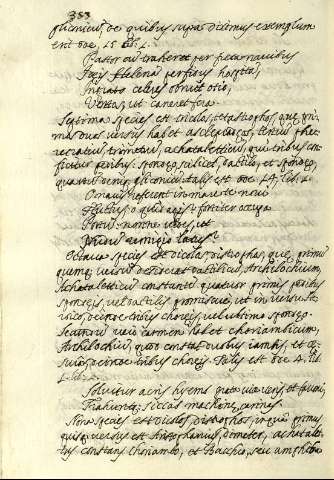 383
gliconicus, de quibus supra diximus exemplum
erit ode, 15 Lib: 1.
Pastor cū traheret per freta navibus
Ideis Helenā perfidus hospitā,
Ingrato celeres obruit otio,
Ventos, ut caneret fera.
Septima species est tricolos, tetrastrophos, que pri-
mos duos versus habet asclepiadeos, tertiū phe-
recratiū trimetrū, acatalecticū, qui tribus con-
ficitur pedibus: spondeo, scilicet, dactilo, et spondeo,
quartū denique gliconicū. talis est ode 14. Lib. 1.
O navis referent in mare te novi
Fluctus o quid agis? fortiter occupa
Portū: nonne vides, ut
Nudū remigio latus?
Octava species est dicolos, distrophos, que primū
quemque versū
Archilochium,
acatalecticū constante quatuor primis pedibus
spondeis, vel dactilis promiscue, ut in versu
tribus choreis, vel ultimo spondeo.
Secundū vero carmen habet
Archilochiū, quod constat duobus iambis, et
tribus choreis. Talis est ode 4. Lib.
Solvitur acris hyems grata vice veris, et favoni,
Trahuntque siccas machine carinas.
Nona species est dicolos, distrophos, in qua primus
quisque versus est Aristophanius, dimeter, acatalec-
tus constans choriambo, et Bacchio, seu amphibra